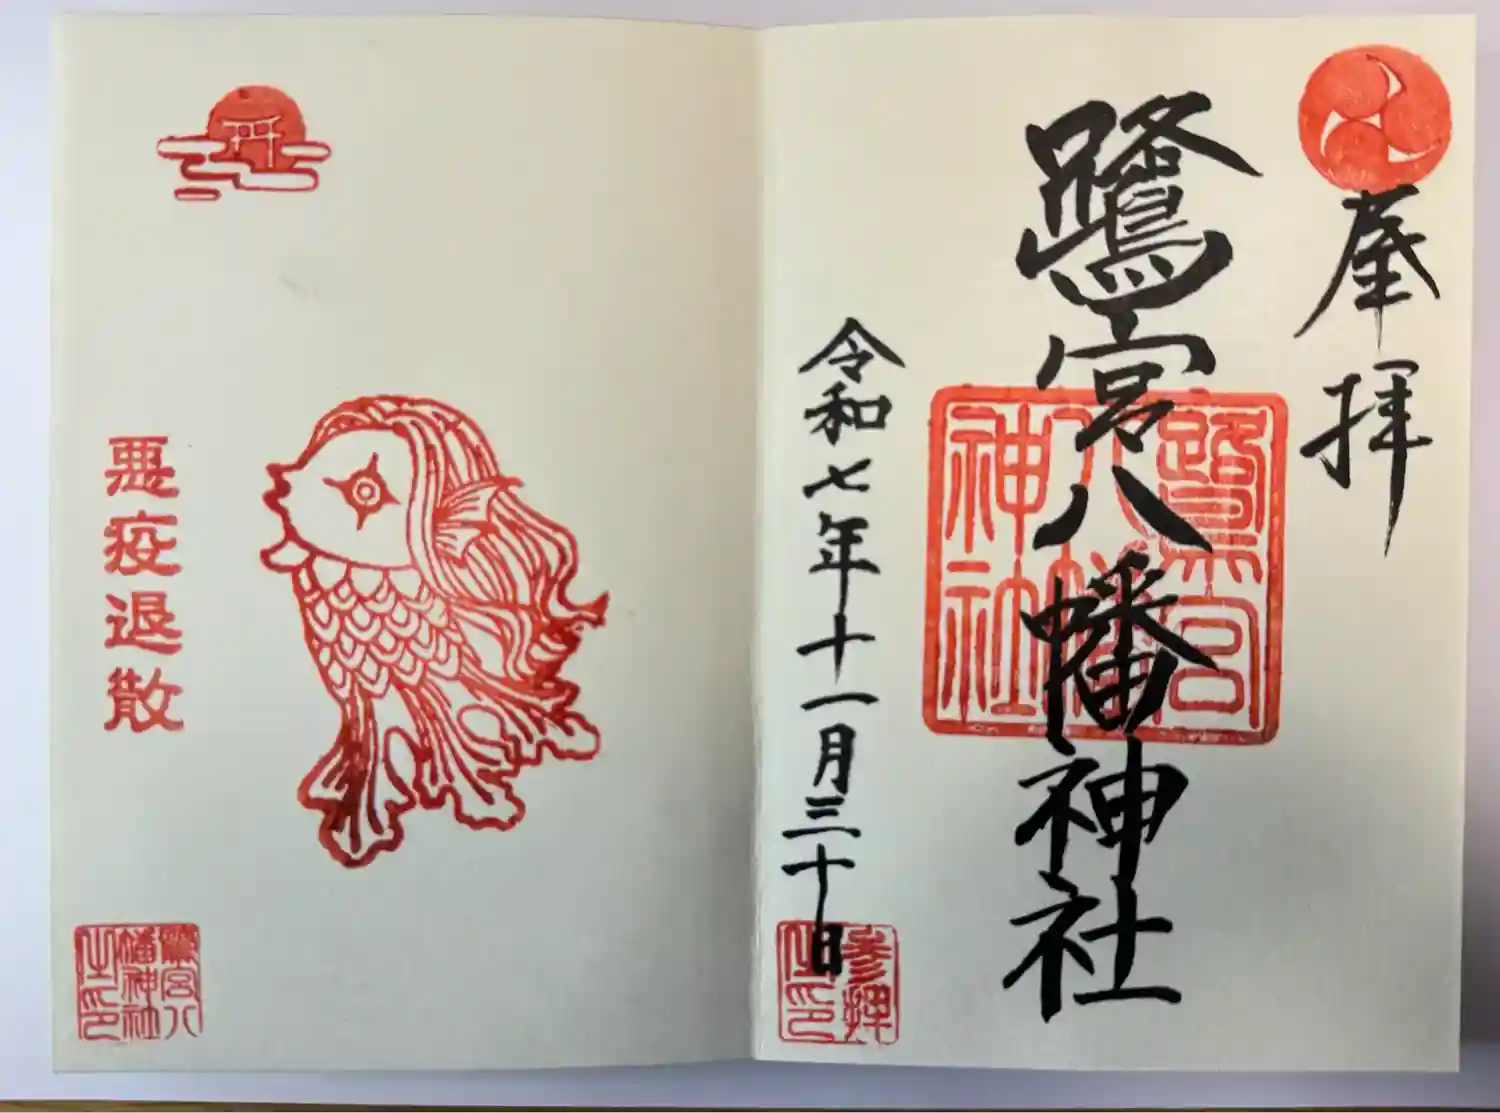 奉拝
鷺宮八幡神社
鷺宮
八幡
神社
令和七年十一月三十日
参拝
之印
悪疫退散
鷺宮八
幡神社
之印